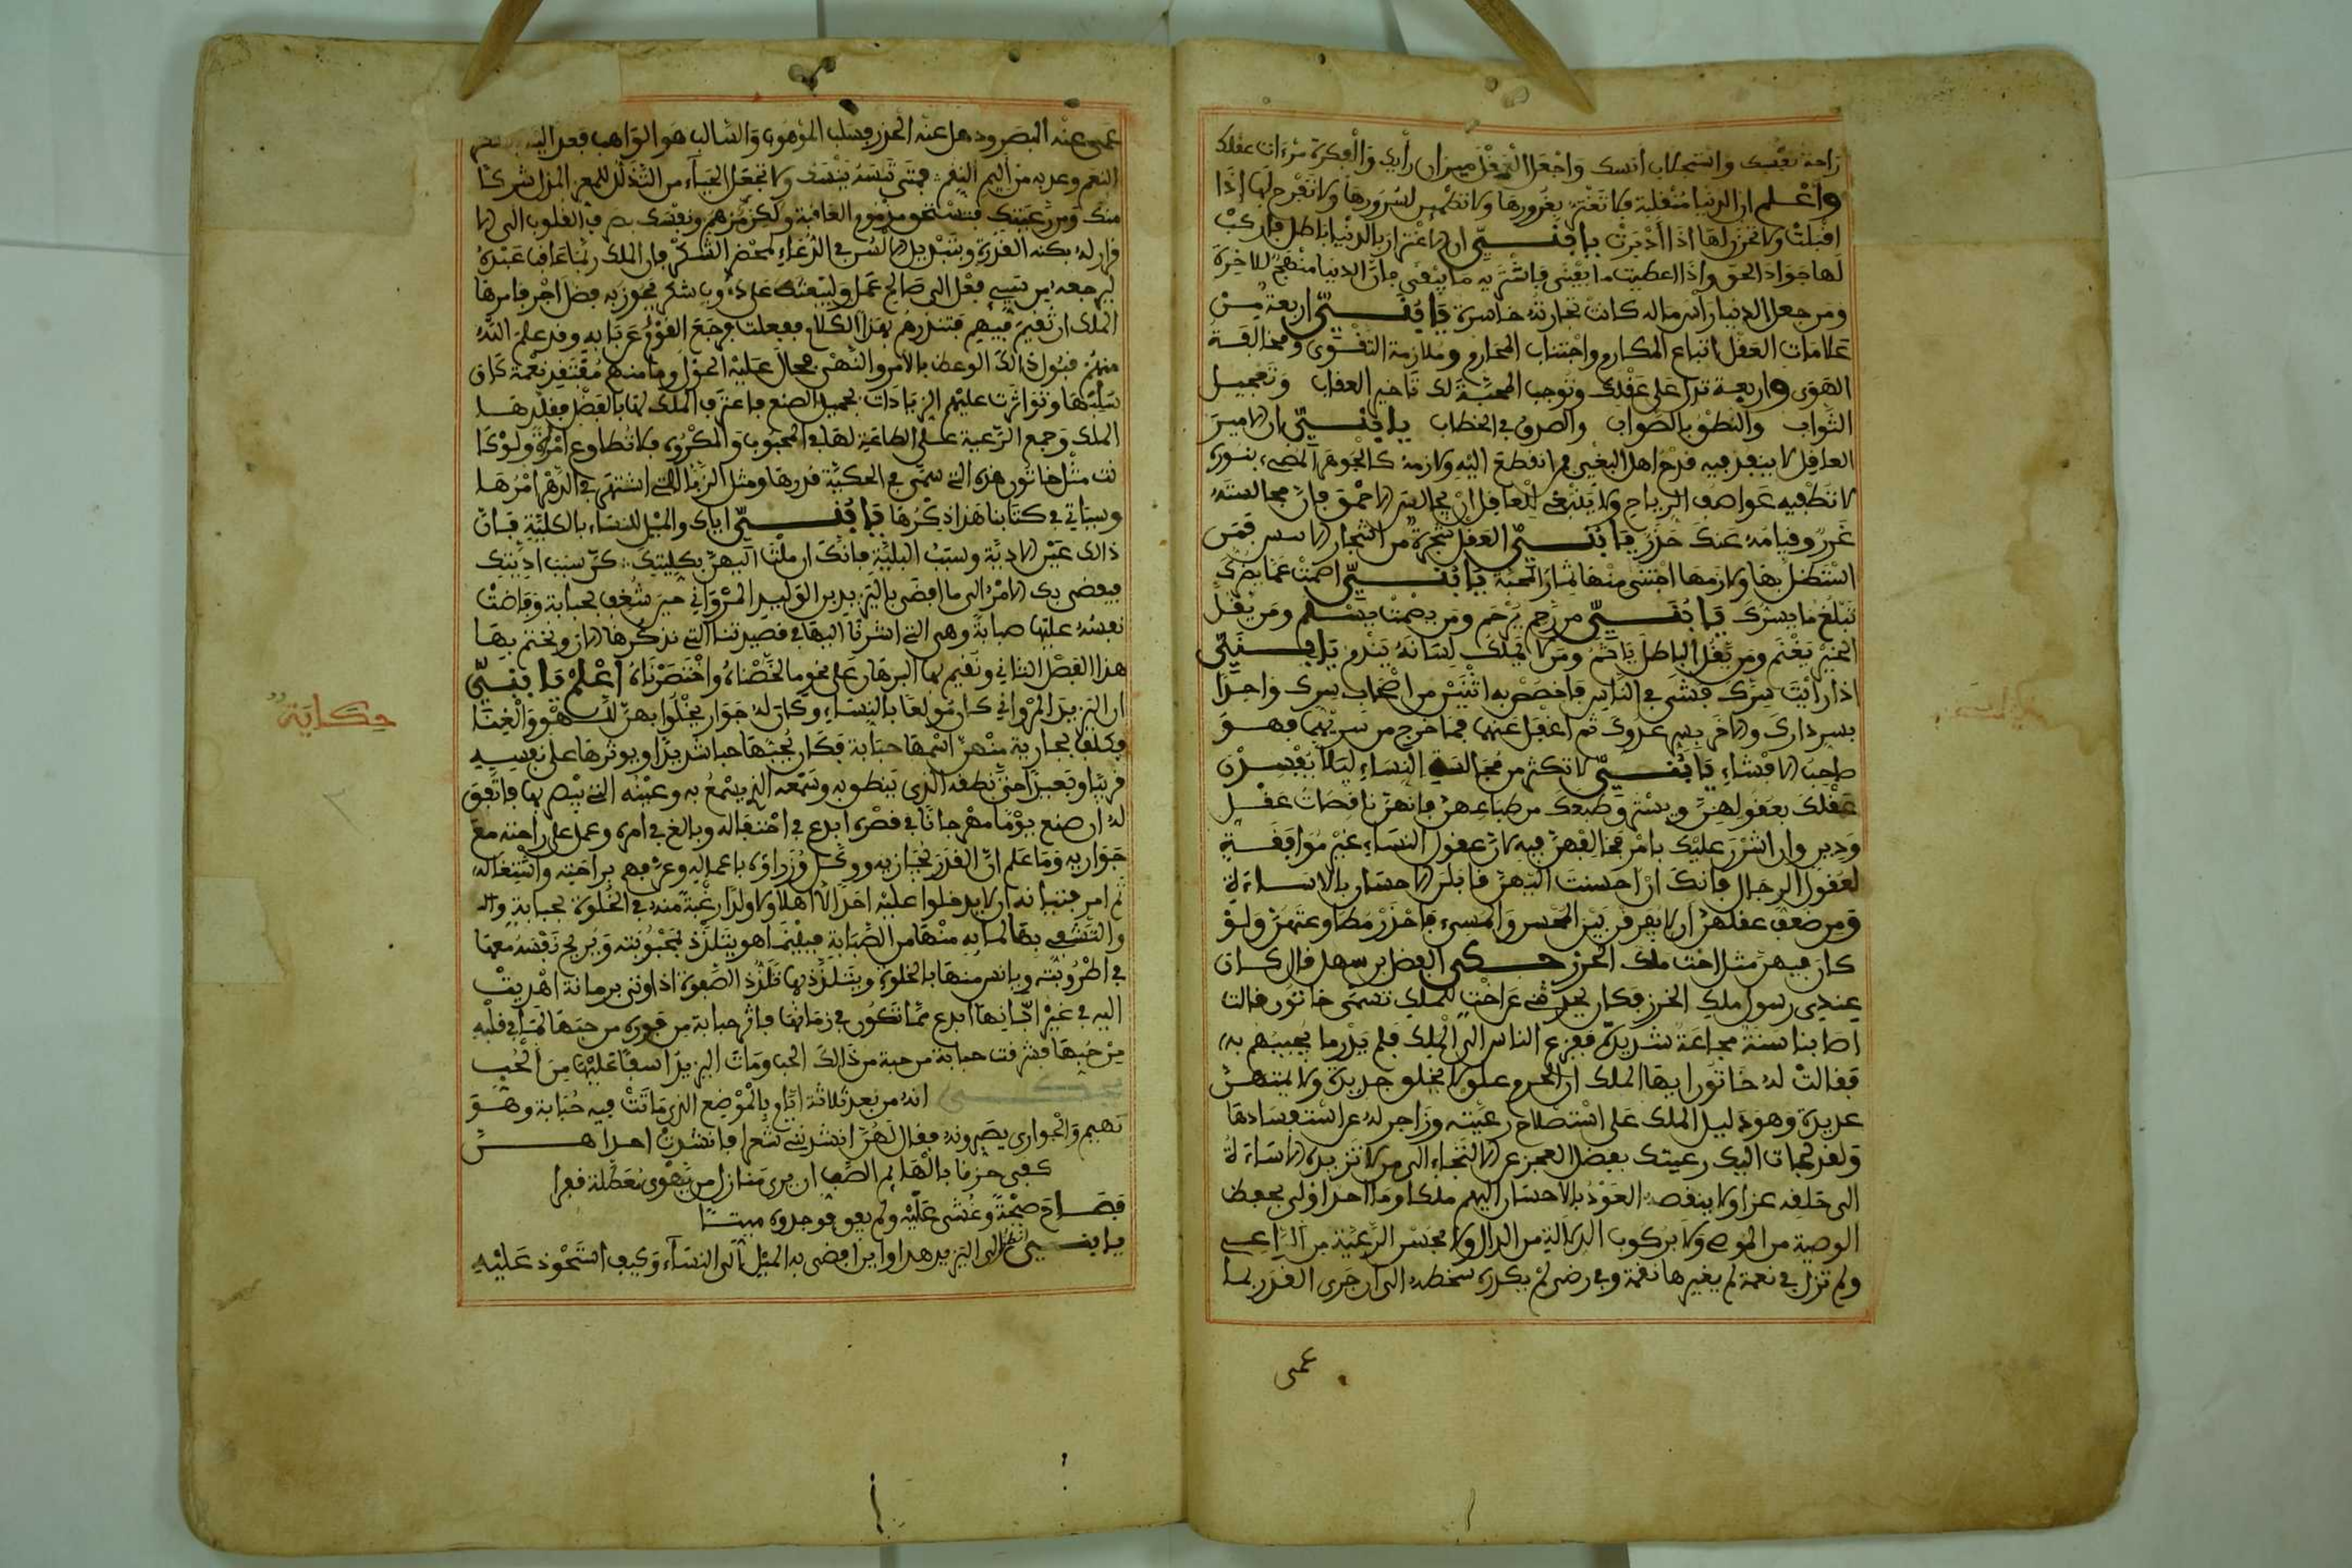 راحة نفسك واستجلاب أنسك واجعل العقل ميزان رأيك والفكرة مرءات عقلك
واعلم ان الدنيا منقلبة فلا تغتر بغرورها ولا تطمئن لسرورها ولا تفرح لها إذا
اقبلت ولا تحزن لها اذا أدبرت يا بني ان الاغترار بالدنيا باطل فاركب
لها جواد الحق وإذا اعطيت ما يفنى فاشتر به ما يبقى فان الدنيا منهج للآخرة
ومن جعل الدنيا رأس ماله كانت تجارته خاسرة يا بني اربعة من
علامات العقل اتباع المكارم واجتناب المحارم وملازمة التقوى ومخالفة
الهوى واربعة تدل على عقلك وتوجب المحبة لك تاخير العقاب وتعجيل
الثواب والنطق بالصواب والصدق في الخطاب يا بني ان الامير
العاقل لا ينفذ فيه قدح اهل البغي فمن انقطع اليه ولازمه كالجوهر المضيء بنوره
لا تطفيه عواصف الرياح ولا ينبغي للعاقل ان يجالس الاحمق فان مجالسته
غرر وقيامه عنك حذر يا بني العقل شجرة من اشجار فمن
استظل بها ولازمها اجتنى منها ثمار المحبة يا بني اصمت عما يضرك
تبلغ ما يسرك يا بني من رحم يرحم ومن يصمت يسلم ومن يقل
الخير يغنم ومن يقل الباطل ياثم ومن لا يملك لسانه يندم يا بني
اذا رأيت سرك فشى في الناس فاخصص به اثنين من اصحاب سرك واحدا
بسر دارك والاخر بسر عدوك ثم اغفل عنهما فما خرج من سريهما فهو
صاحب الافشاء يا بني لا تكثر من مجالسة النساء ليلا يفسدن
عقلك بعقولهن ويسترق طبعك من طباعهن فانهن ناقصات عقل
ودين وان اشرن عليك بامر فخالفهن فيه لان عقول النساء غير موافقة
لعقول الرجال فانك ان احسنت اليهن قابلن الاحسان بالاساءة
ومن ضعف عقلهن ان لا يفرقن بين المحسن والمسيء فاحذر مطاوعتهن ولو
كان فيهن مثل اخت ملك الخزر حكى الفضل بن سهل قال كان
عندي رسول ملك الخزر فكان يحدثني عن اخت للملك تسمى خاتون قالت
اصابنا سنة مجاعة شديدة ففزع الناس الى الملك فلم يدر ما يجيبهم به
فقالت له خاتون ايها الملك ان الحزم علو لا يخلو جديده ولا يمتهن
عزيزه وهو دليل الملك على استصلاح رعيته وزاجر له عن استفسادها
ولقد لجات اليك رعيتك بفضل العجز عن الالتجاء الى من لا تزيده الاساءة
الى خلقه عزا ولا ينقصه العود بالاحسان اليهم ملكا وما احد اولى بحفظ
الوصية من الموصي ولا بركوب الدلالة من الدال ولا بحسن الرعية من الراعي
ولم تزل في نعمة لم يغيرها نقمة وفي رضى لم يكدره سخط الى ان جرى القدر بما
عمى
عمى عنه البصر وذهل عنه الحزر فسلب الموهوب والسالب هو الواهب فعد اليه
النعم وعد به من أليم النقم فمتى تنسه ينسك ولا تجعل الحياء من التذلل للمعز المذل شركا
منك ومن رعيتك فتستحق مذموم العاقبة ولكن مرهم ونفسك بصرف القلوب الى الا
قرار له بكنه القدرة وبتبديل الالسن في الدعاء لمحض الشكر فان الملك ربما عاقب عبده
ليرجعه من سيئ فعل الى صالح عمل وليبعثه على دءوب شكر يحوز به فضل اجر فامرها
الملك ان تقيم فيهم فتنذرهم بهذا الكلام ففعلت فرجع القوم عن بابه وقد علم الله
منهم قبول ذلك الوعظ بالامر والنهي فحال عليه الحول وما منهم مفتقد نعمة كان
سلبها وتواترت عليهم الزيادات بجميل الصنع فاعترف الملك لها بالفضل فقلدها
الملك وجمع الرعية على الطاعة لها في المحبوب والمكروه فلا تطاوع امرأة ولو كا
نت مثل خاتون هذه التي سمى في الحكية قدرها ومثل الزباء التي اشتهر في الدهر امرها
وسياتي في كتابنا هذا ذكرها يا بني اياك والميل للنساء بالكلية فان
ذلك عين الاذية وسبب البلية فانك ان ملت اليهن بكليتك كن سبب اذيتك
فيفضي بك الامر الى ما افضى باليزيد بن الوليد المرواني حين شغف بحبابة وفاضت
نفسه عليها صبابة وهي التي اشرنا اليها في قصيدتنا التي نذكرها الان ونختم بها
هذا الفصل الثاني ونقيم لها البرهان على نحو ما لخصناه واختصرناه اعلم يا بني
ان اليزيد المرواني كان مولعا بالنساء وكان له جوار يخلوا بهن للهو والغنا
وكلف بجارية منهن اسمها حبابة فكان يحبها حبا شديدا ويوثرها على نفسه
قريبا وبعيدا حتى نطقه الذي ينطق به وسمعه الذي يسمع به وعينه التي يبصر بها فاتفق
له ان صنع يوما مهرجانا في قصره ابدع في احتفاله وبالغ في امره وعمل على راحته مع
جواريه وما علم ان القدر يجازيه ووكل وزراؤه باعماله وعرفهم براحته واشتغاله
ثم امر فتيانه ان لا يدخلوا عليه احدا لا اهلا ولا ولدا رغبة منه في الخلوة بحبابة
والتشفي بها لما به منها من الصبابة فبينما هو يتلذذ بمحبوبته ويريح نفسه معها
في اطروبته ويانس منها بالخلوة ويتلذذ بها تلذذ الصبوة اذ اوتي برمانة اهديت
اليه في غير ابانها ابدع مما تكون في زمانها
من حبها فشرقت حبابة من حبة من ذلك الحب ومات اليزيد اسفا عليها من الحب
انه مر بعد ثلاثة ايام بالموضع الذي ماتت فيه حبابة وهو
يهيم والجواري يصبرونه فقال لهن انشدنني شعرا فانشدت احداهن
كفى حزنا بالهائم الصب ان يرى منازل من يهوى معطلة قفرا
فصاح صيحة وغشي عليه ولم يفق فوجدوه ميتا
يا بني انظر الى اليزيد هذا واين افضى به الميل الى النساء وكيف استحوذ عليه
حكاية